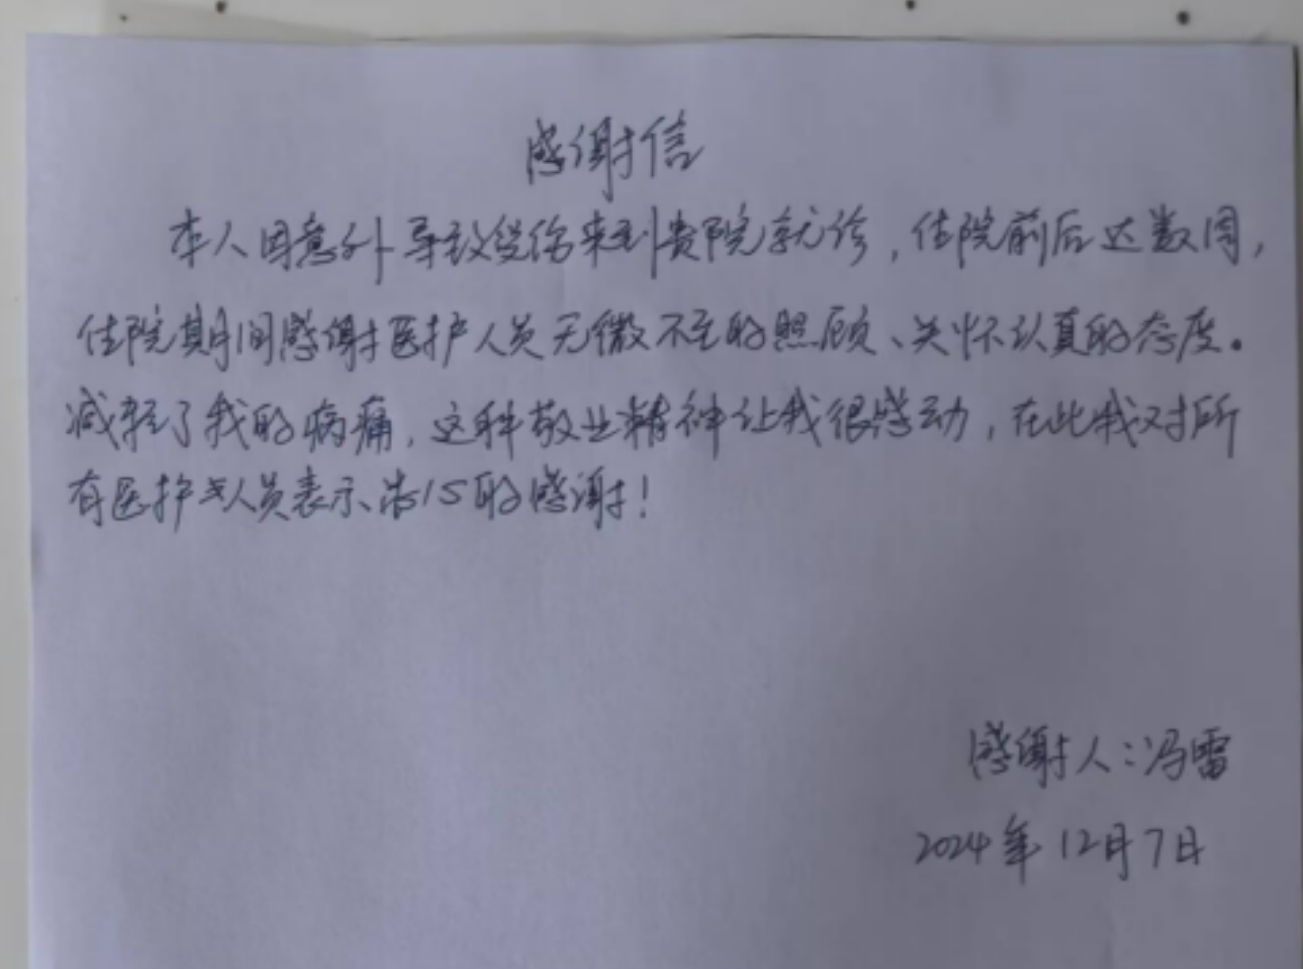 感谢信
本人因意外导致受伤来到贵院就诊，住院前后达数周，
住院期间感谢医护人员无微不至的照顾、关怀认真的态度。
减轻了我的病痛，这种敬业精神让我很感动，在此我对所
有医护人员表示衷心的感谢！
感谢人：冯雷
2024年12月7日